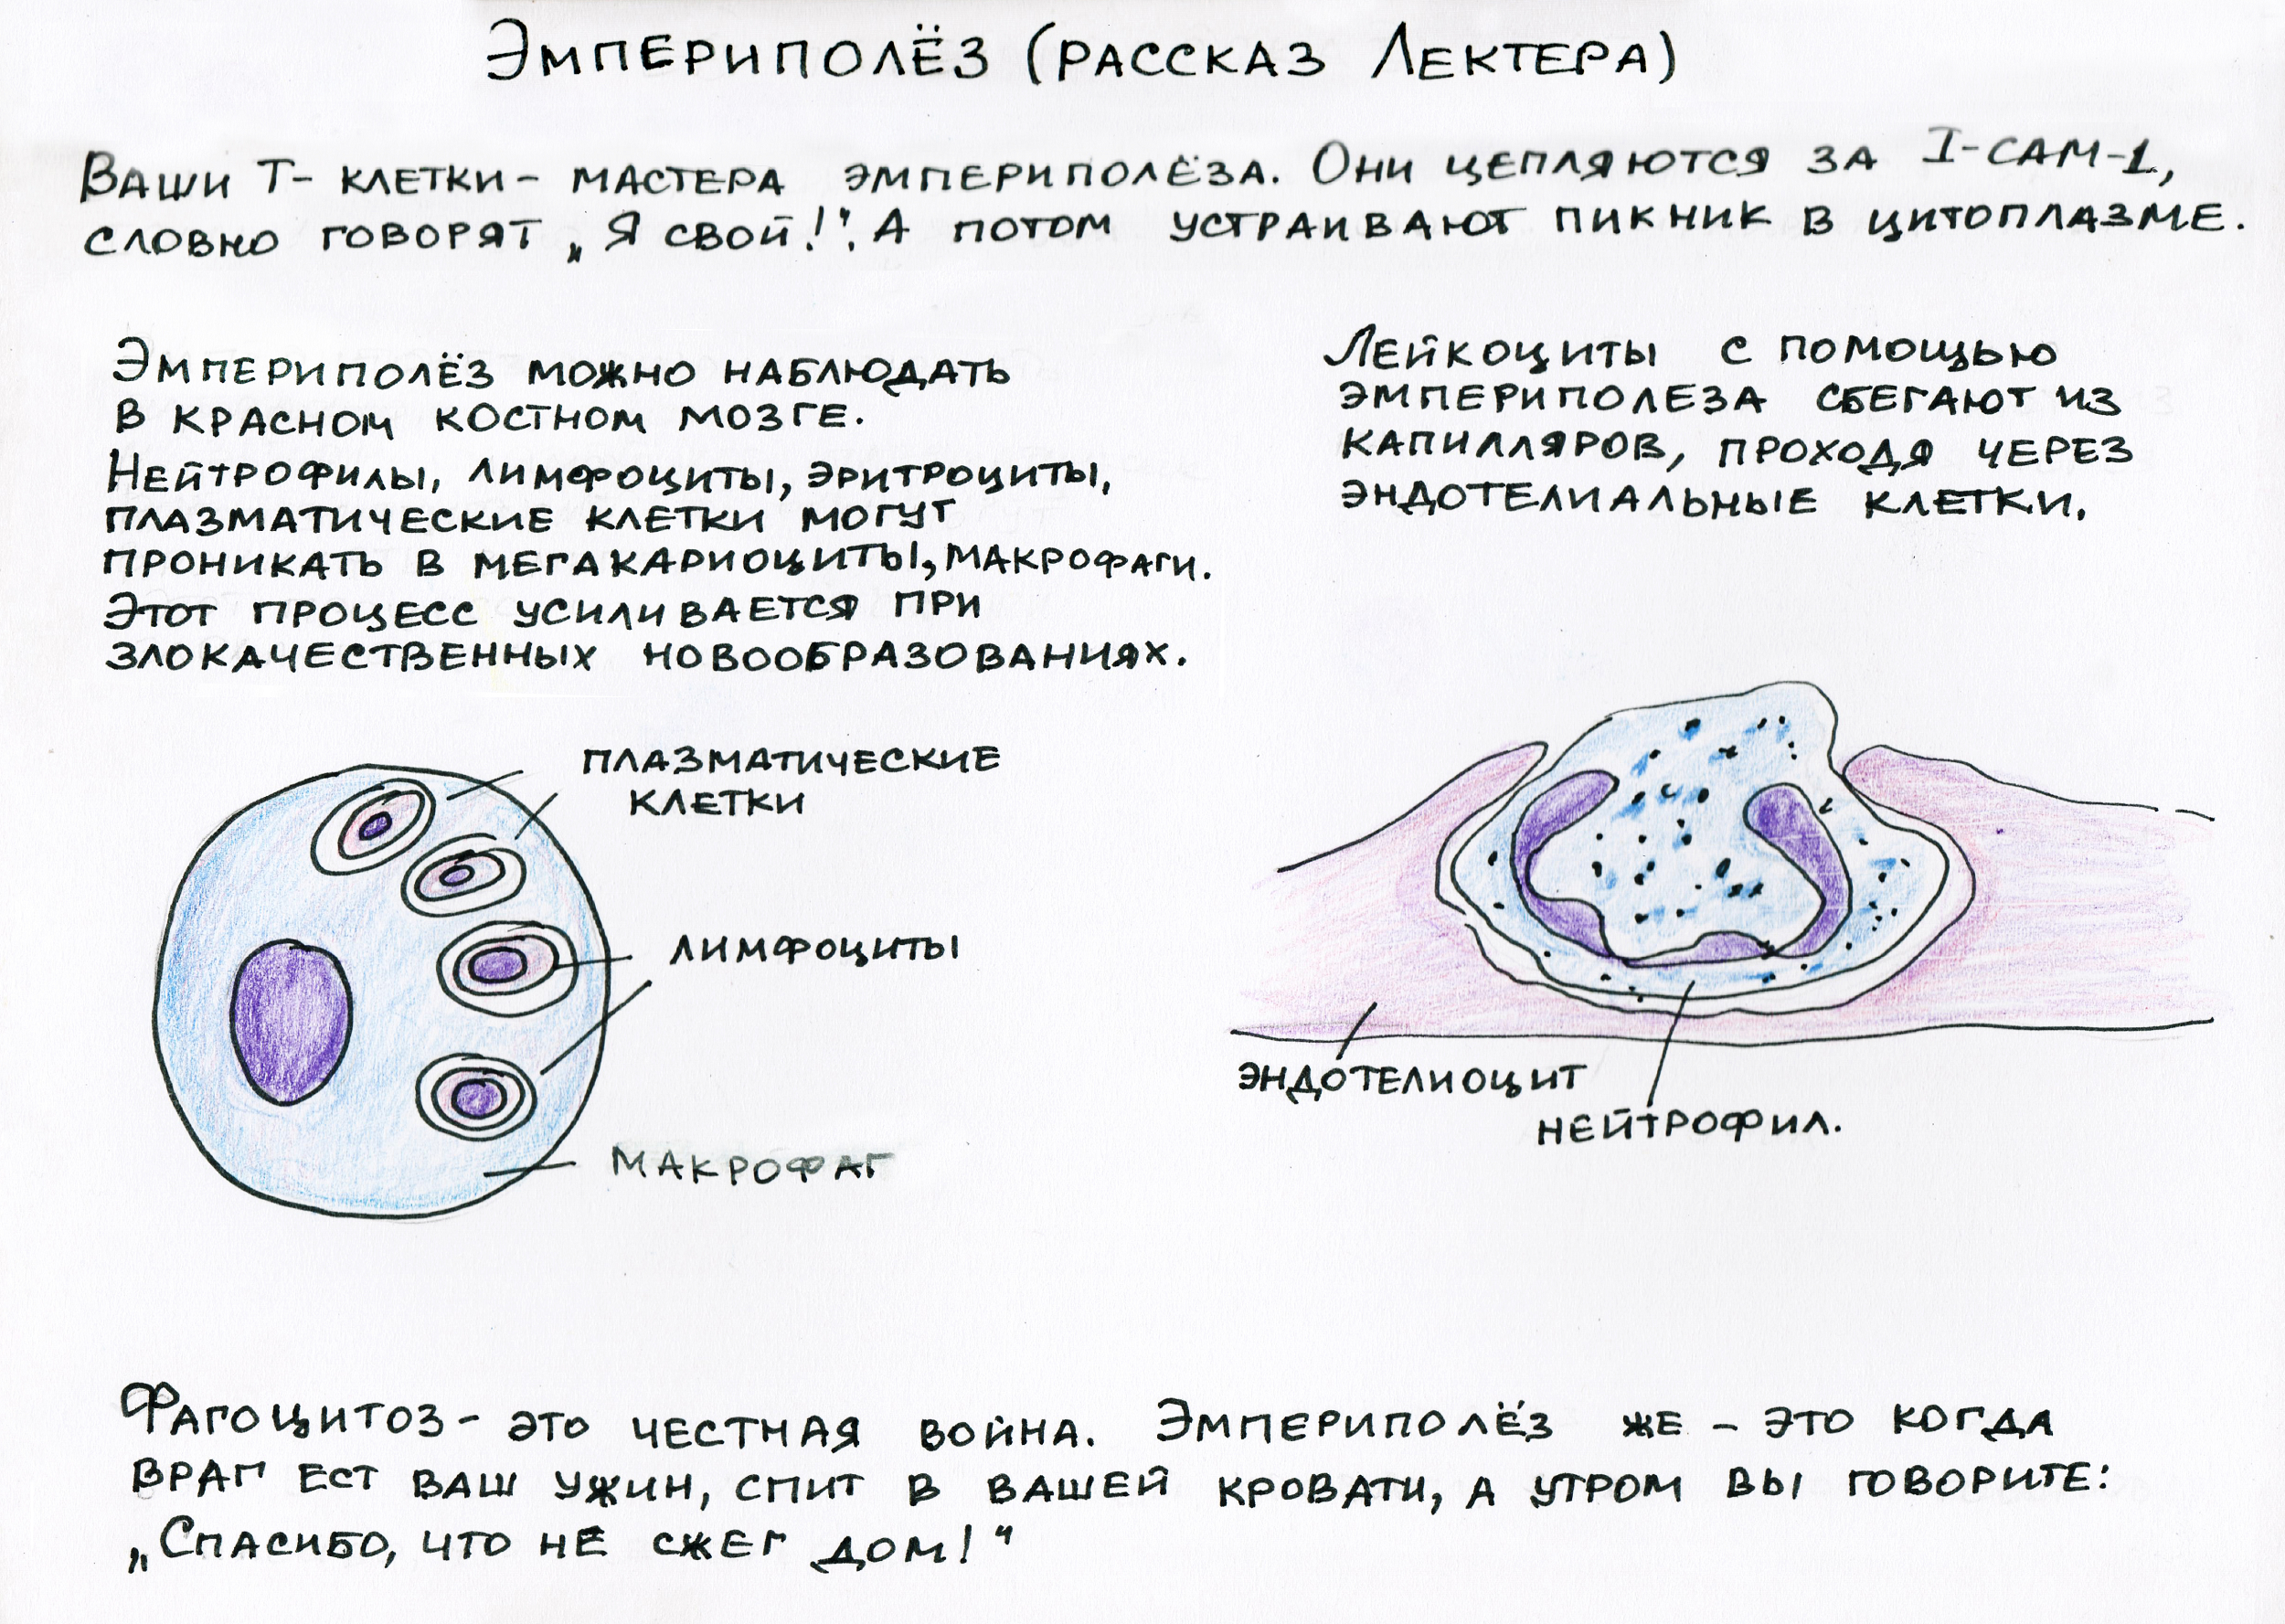 Эмпериполёз (рассказ Лектера)
Ваши Т- клетки - мастера эмпериполёза. Они цепляются за I-CAM-1,
словно говорят „Я свой!". А потом устраивают пикник в цитоплазме.
Эмпериполёз можно наблюдать
в красном костном мозге.
Нейтрофилы, лимфоциты, эритроциты,
плазматические клетки могут
проникать в мегакариоциты, макрофаги.
Этот процесс усиливается при
злокачественных новообразованиях.
Лейкоциты с помощью
эмпериполеза сбегают из
капилляров, проходя через
эндотелиальные клетки.
плазматические
клетки
лимфоциты
макрофаг
эндотелиоцит
нейтрофил.
Фагоцитоз - это честная война. Эмпериполёз же - это когда
враг ест ваш ужин, спит в вашей кровати, а утром вы говорите:
„Спасибо, что не сжег дом!"